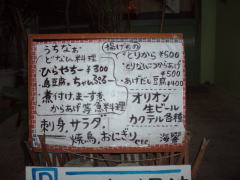 うちなぁ
どなん料理
ひらやちー ¥300
島豆腐. ちゃんぷるー
煮付け. まーす煮
からあげ 等 魚料理
刺身. サラダ
焼鳥. おにぎり
etc
揚げもの
とりから ¥500
¥500
あげだし豆腐 ¥400
オリオン
生ビール
カクテル各種